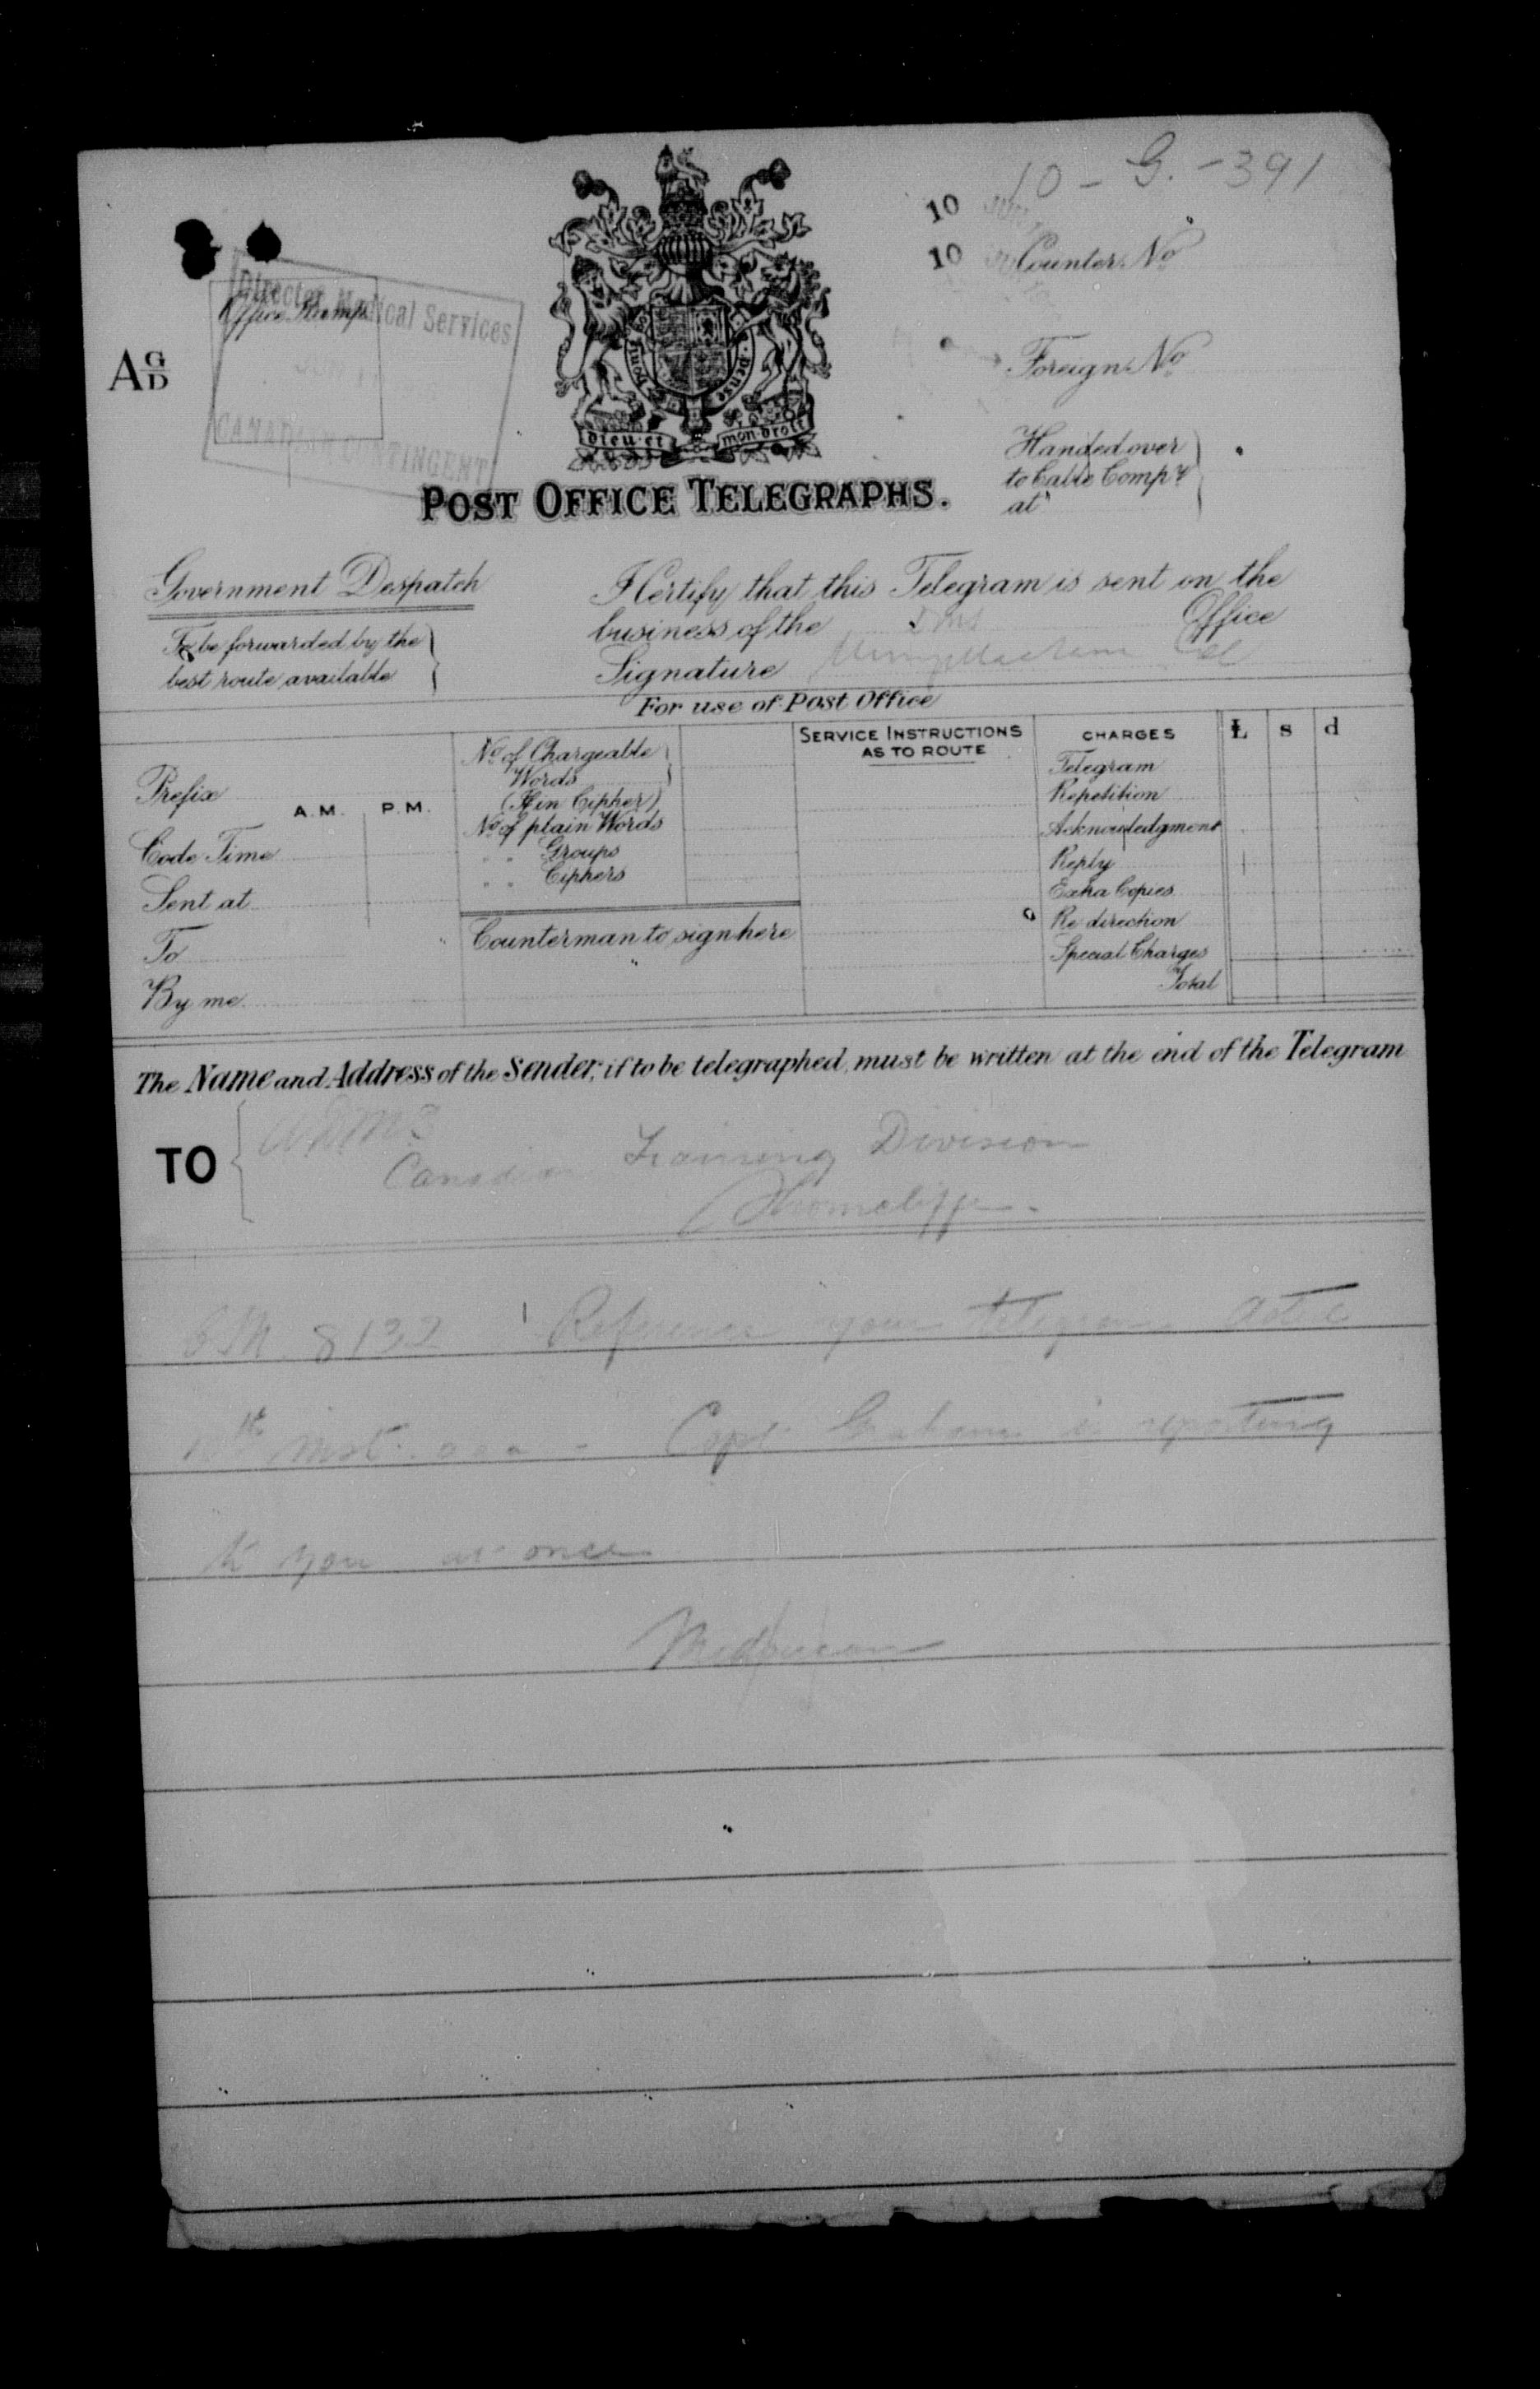 10 - G. - 391
10
10
Counter No
Director Medical Services
Office Stamp
AG/D
CANADIAN CONTINGENT
Foreign No
Handed over
to Cable Compy
at
Dieu et mon droit
POST OFFICE TELEGRAPHS.
Government Despatch
To be forwarded by the
best route available
I Certify that this Telegram is sent on the
business of the DMS Office
Signature Col
For use of Post Office
Prefix
A.M. P.M.
Code Time
Sent at
To
By me
No of Chargeable
Words
(If in Cipher)
No of plain Words
" " Groups
" " Ciphers
Counterman to sign here
SERVICE INSTRUCTIONS
AS TO ROUTE
CHARGES £ s d
Telegram
Repetition
Acknowledgment
Reply
Extra Copies
Re direction
Special Charges
Total
The Name and Address of the Sender, if to be telegraphed, must be written at the end of the Telegram
TO
A.D.M.S.
Canadian Training Division
Shorncliffe.
8132 Reference your telegram dated
inst. aaa - Capt Graham is reporting
to you at once